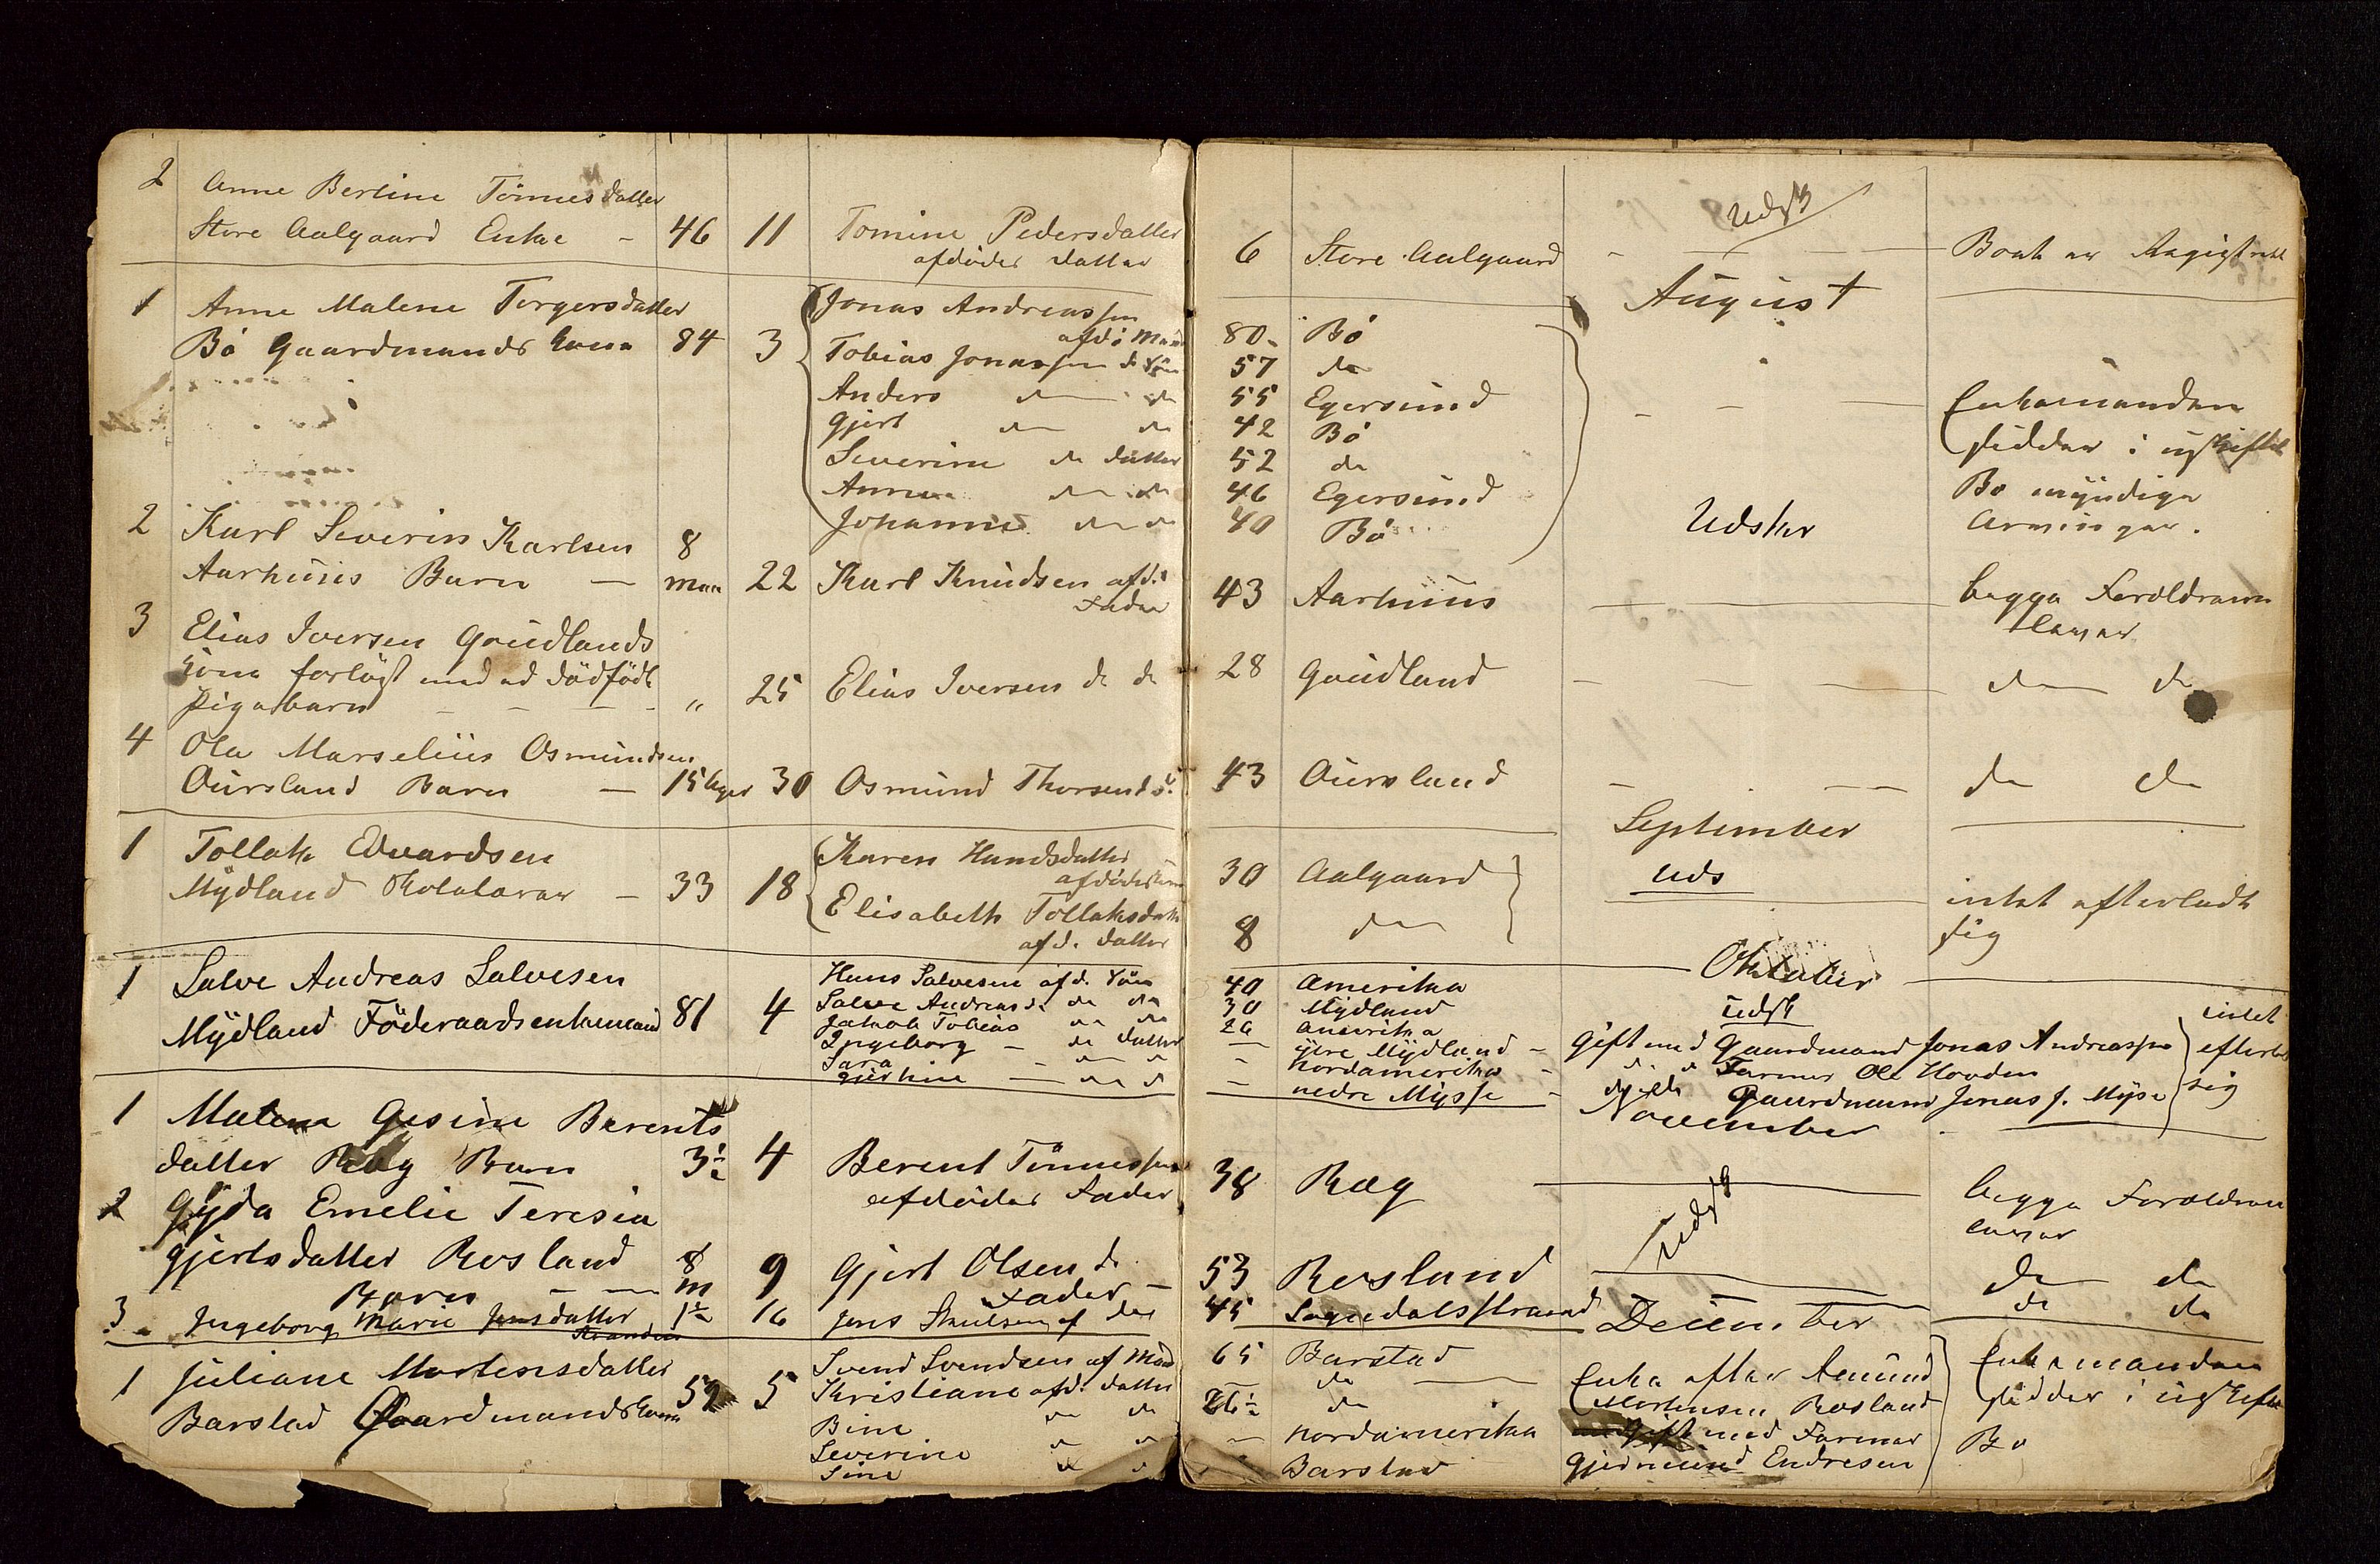 2 Anne Bertine Tönnesdatter
Store Aalgaard Enke – 46 11 Tomine Pedersdatter
afdødes datter
1 Anne Malene Torgersdatter
Bö Gaardmands kone 84 3 Jonas Andreassen
afdö Man
Tobias Jonassen d. Sön
Anders do do
Gjert do do
Severine do datter
Anna do do
Johanne do do
2 Karl Severin Karlsen 8
Aarhuus Barn – maa 22 Karl Knudsen afd.
Fader
3 Elias Iversen Goudlands
kone forlöst med ed dödfödt
Pigebarn – – – " 25 Elias Iversen do do
4 Ole Marselius Osmundsen
Oursland Barn – 15 dager 30 Osmund Thorsen
1 Tollak Edvardsen
Mydland – 33 18 Karen Hansdatter
Elisabeth Tollaksdatt
afd. datter
1 Salve Andreas Salvesen
Mydland Föderaadsenkemand 81 4 Hans Salvesen afd. Sön
Salve Andreas do do
Jakob Tobias do do
Ingeborg – do datter
Sara – do do
– do do
1 Malena Gesine Berents
datter Ræg Barn 3½ 4 Berent Tönnessen
afdödes Fader
2 Gyda Emelie Teresia
Gjertsdatter Rosland 8
Barn – – m 9 Gjert Olsen d.
Fader –
3 Ingeborg Marie Jensdatter 1½ 16 Jens
1 Juliane Mortensdatter
Barstad Gaardmandskone 59 5 Svend Svendsen af Man
Kristiane afd. datter
Bine do do
Severine do do
Sine do do
6 Store Aalgaard – Udsk – Boet er Registrert
August
80 Bö
57 do
55 Egersund – – – Enkemanden
42 Bö sidder i uskiftet
52 do
46 Egersund Bo myndige
40 Bö Udskr Arvinger.
43 Aarhuus – begge Foreldrene
lever
28 Goudland – – – do do
43 Oursland – – do do
September
30 Aalgaard uds
8 do intet efterladt
sig
Oktober
40 Amerika
30 Mydland udsk intet
26 amerika
– ytre Mydland – gift med Gaardmand Jonas Andreassen efterladt
– Nordamerika – d. d. Farmer Ole Hovden sig
– nedre Mysse – Gaardmand Jonas J. Myse
November
38 Ræg – begge Foreldrene
lever
Udsk
53 Rosland do do
45 Sognedalsstrand do do
December
65 Barstad Enke efter Amund Enkemanden
do – Mortensen Rosland sidder i uskiftet
26½ do gift med Farmer
– Nordamerika Gjermund Endresen Bo
Barstad